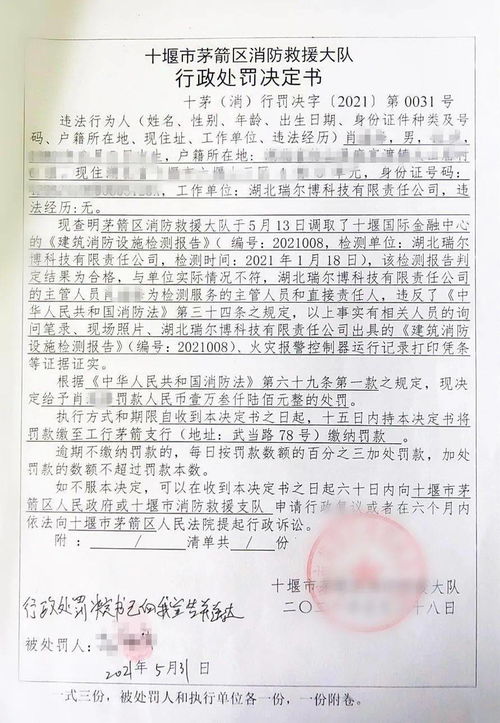 十堰市茅箭区消防救援大队
行政处罚决定书
十茅（消）行罚决字〔2021〕第0031号
违法行为人（姓名、性别、年龄、出生日期、身份证件种类及号
码、户籍所在地、现住址、工作单位、违法经历）肖 男，
出生，户籍所在地：
现住 单元，身份证号码：
工作单位：湖北瑞尔博科技有限责任公司，违
法经历：无。
现查明茅箭区消防救援大队于5月13日调取了十堰国际金融中心
的《建筑消防设施检测报告》（编号：2021008，检测单位：湖北瑞尔
博科技有限责任公司，检测时间：2021年1月18日），该检测报告判
定结果为合格，与单位实际情况不符，湖北瑞尔博科技有限责任公司
的主管人员肖 为检测服务的主管人员和直接责任人，违反了《中
华人民共和国消防法》第三十四条之规定，以上事实有相关人员的询
问笔录、现场照片、湖北瑞尔博科技有限责任公司出具的《建筑消防
设施检测报告》（编号：2021008）、火灾报警控制器运行记录打印凭条
等证据证实。
根据《中华人民共和国消防法》第六十九条第一款之规定，现决
定给予肖 罚款人民币壹万叁仟陆佰元整的处罚。
执行方式和期限自收到本决定书之日起，十五日内持本决定书将
罚款缴至工行茅箭支行（地址：武当路78号）缴纳罚款。
逾期不缴纳罚款的，每日按罚款数额的百分之三加处罚款，加处
罚款的数额不超过罚款本数。
如不服本决定，可以在收到本决定书之日起六十日内向十堰市茅
箭区人民政府或十堰市消防救援支队 申请行政复议或者在六个月内
依法向十堰市茅箭区人民法院提起行政诉讼。
附： / 清单共 / 份
十堰市茅箭区消防救援大队
二〇二 十八日
行政处罚决定书已向我宣告并送达
被处罚人：
2021年5月31日
一式三份，被处罚人和执行单位各一份，一份附卷。